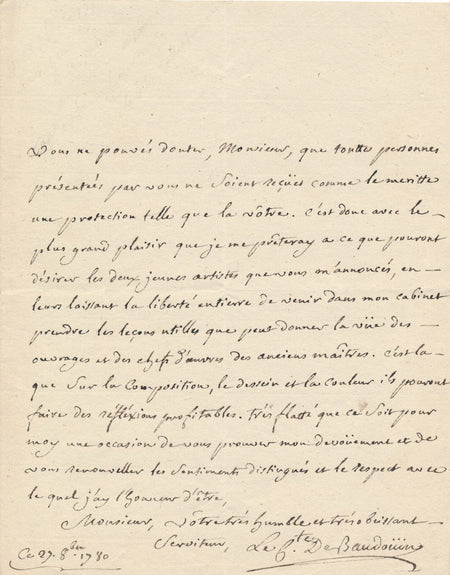 Vous ne pouvés douter, Monsieur, que toutte personnes
présentées par vous ne Soient reçües comme le meritte
une protection telle que la vôtre. C'est donc avec le
plus grand plaisir que je me prêteray a ce que pouront
désirer les deux jeunes artistes que vous m'annoncés, en
leurs laissant la liberté entierre de venir dans mon cabinet
prendre les leçons utilles que peut donner la vüe des
ouvrages et des chefs d'œuvres des anciens maîtres. C'est la
que Sur la Composition, le dessein et la Couleur ils pouront
faire des réfléxions profitables. trés flatté que ce Soit pour
moy une occasion de vous prouver mon devoüement et de
vous renouveller les Sentiments distingués et le respect avec
le quel j'ay l'honneur d'être,
Monsieur, Vôtre trés humble et trés obeissant
Serviteur, Le Cte De Baudoüin
Ce 27. 8bre 1780